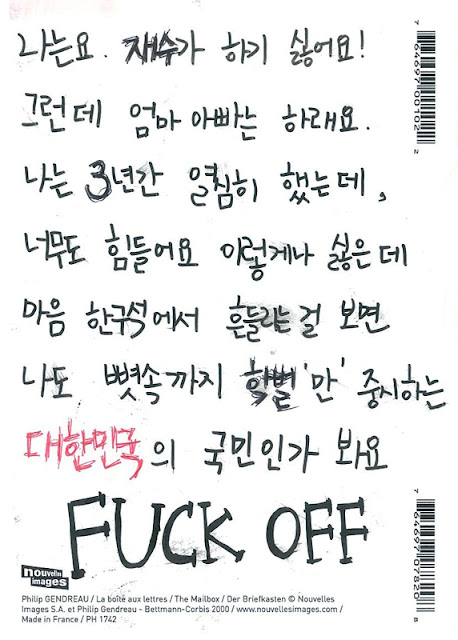 나는요. 재수가 하기 싫어요!
그런데 엄마 아빠는 하래요.
나는 3년간 열심히 했는데,
너무도 힘들어요 이렇게나 싫은데
마음 한구석에서 흔들리는 걸 보면
나도 뼛속까지 학벌 '만' 중시하는
대한민국의 국민인가 봐요
FUCK OFF
7 64697 00102 2
7 64697 07820 8
nouvelles images
Philip GENDREAU / La boîte aux lettres / The Mailbox / Der Briefkasten © Nouvelles
Images S.A. et Philip Gendreau - Bettmann-Corbis 2000 / www.nouvellesimages.com /
Made in France / PH 1742